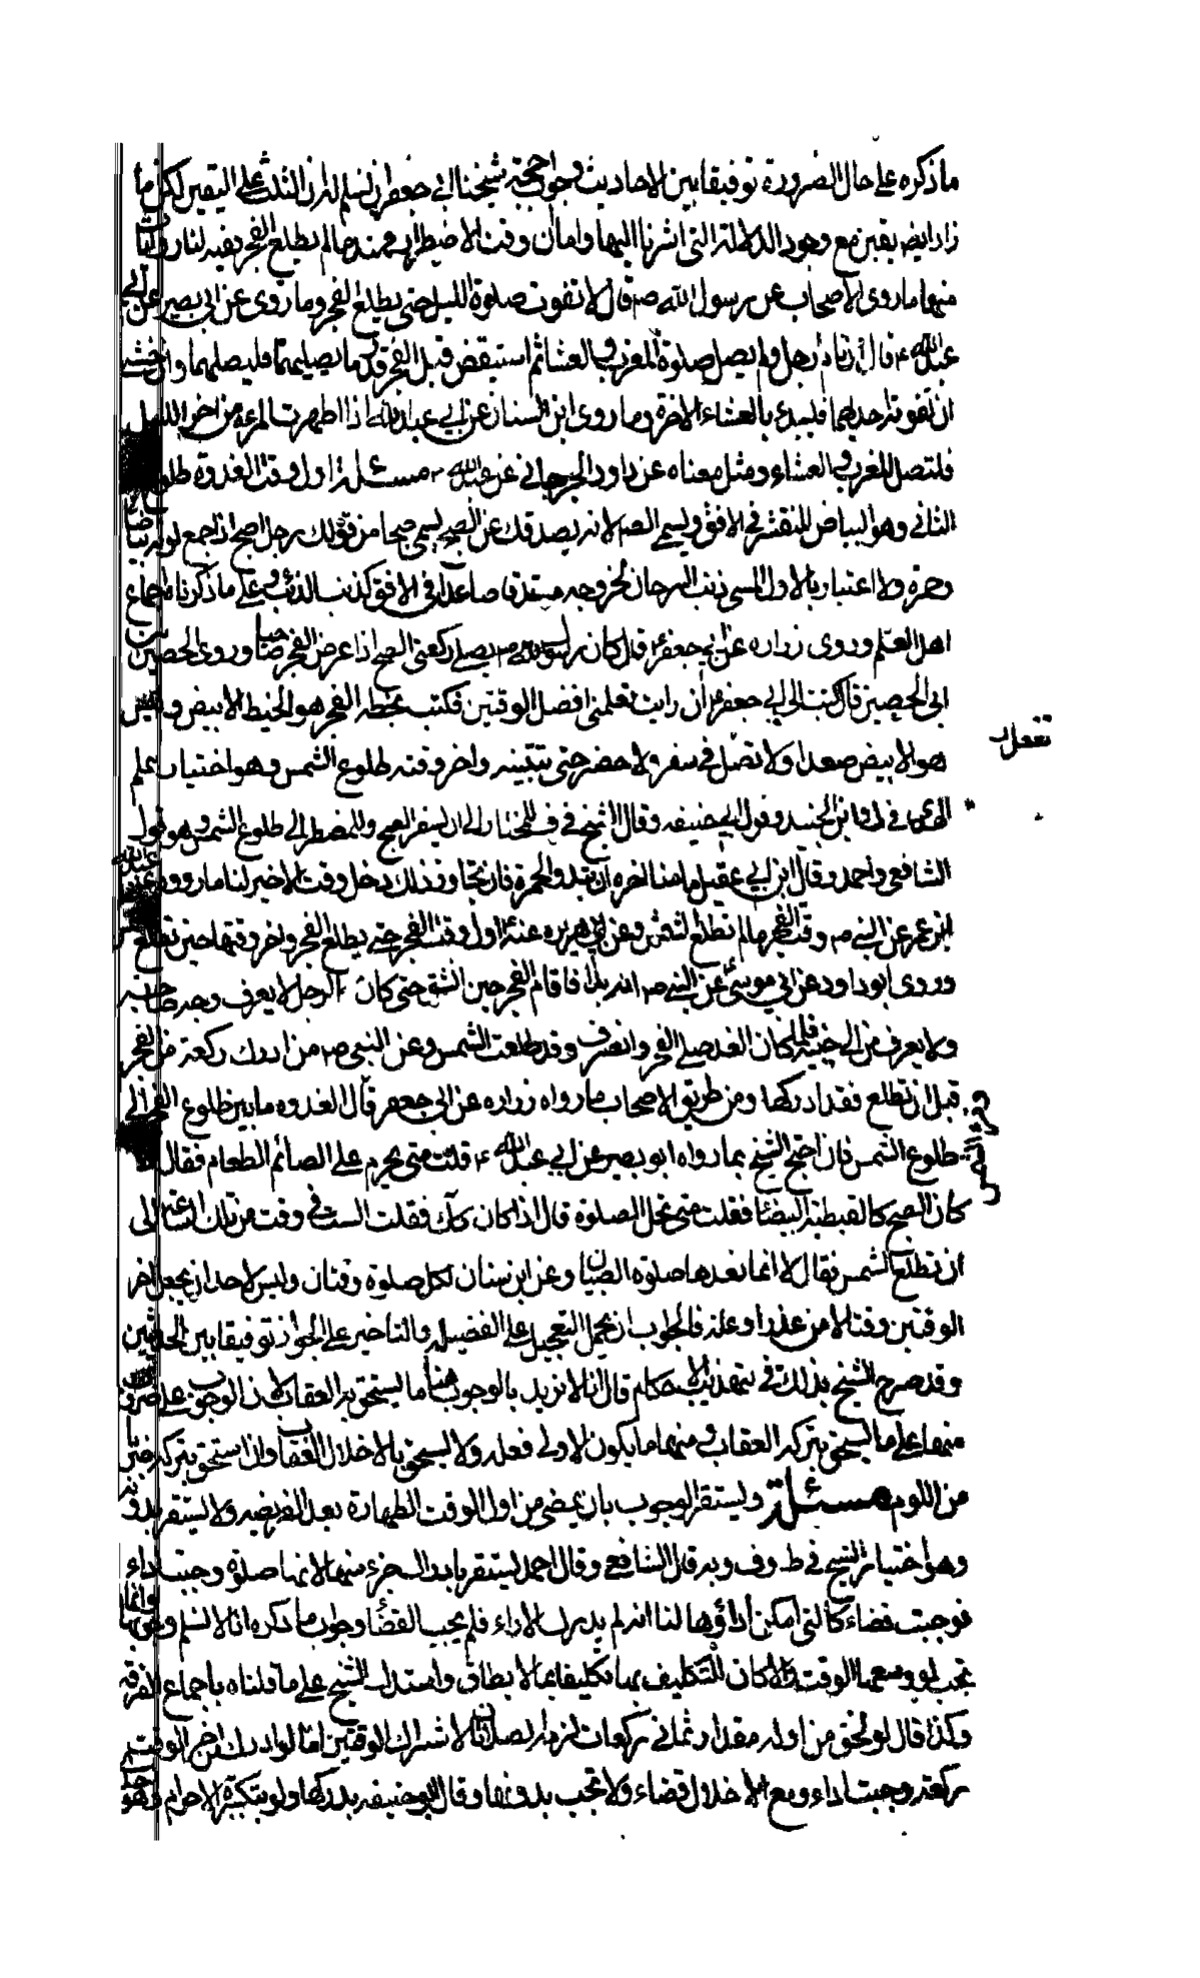 ما ذكره على حال الضرورة توفيقا بين الاحاديث وجواب حجة شيخنا ابي جعفر ان نسلم له ان الثلث على اليقين لكن ما
زاد ايضا يقين مع وجود الدلالة التي اشرنا اليها واما ان وقت الاضطرار ممتد ما لم يطلع الفجر فيه لنا روايات
منها ما روى الاصحاب عن رسول الله ص قال لا تفوت صلوة الليل حتى يطلع الفجر وما روى عن ابي بصير عن ابي
عبد الله ع قال ان نام رجل ولم يصل صلوة المغرب والعشاء ثم استيقض قبل الفجر قدر ما يصليهما فليصلهما وان خشى
ان تفوته احديهما فليبدء بالعشاء الاخرة وما روى ابن السنان عن ابي عبد الله اذا طهرت المرءة من اخر الليل
فلتصل المغرب والعشاء ومثل معناه عن داود الجرجاني عن عبد الله ع مسئلة اول وقت الغدوة طلوع
الثاني وهو البياض المنتشر في الافق ويسمى الصادق لانه يصدقك عن الصبح يسمى صبحا من قولك رجل اصبح اذا جمع لونه بياضا
وحمرة ولا اعتبار بالاول المسمى ذنب السرحان لخروجه مستدقا صاعدا في الافق كذنب الذئب وعلى ما ذكرناه اجماع
اهل العلم وروى زرارة عن ابي جعفر ع قال كان رسول الله ص يصلي ركعتي الصبح اذا عرض الفجر ضاحيا وروى الحصين بن
ابي الحصين قال كتبت الى ابي جعفر ع ان رايت تعلمني افضل الوقتين فكتب بخطه الفجر هو الخيط الابيض وليس
هو الابيض صعدا ولا تصل في سفر ولا حضر حتى تتبينه واخر وقته طلوع الشمس وهو اختيار علم
تفعل
الهدى في وابن الجنيد وقول ابي حنيفه وقال الشيخ في ف للمختار الى ان يسفر الصبح وللمضطر الى طلوع الشمس وهو قول
الشافعي واحمد وقال ابن ابي عقيل اخره ان تبدو الحمرة فان تجاوز ذلك دخل وقت الاخير لنا ما رووه عن عبد الله
ابن عمر عن النبي ص وقت الفجر ما لم تطلع الشمس وعن ابي هريره عنه ع اول وقت الفجر حتى يطلع الفجر واخر وقتها حين تطلع
وروى ابو داود عن ابي موسى عن النبي ص انه فاقام الفجر حين انشق حتى كان الرجل لا يعرف وجه صاحبه
ولا يعرف من الى جنبه فلما كان الغد صلى الفجر وانصرف وقد طلعت الشمس وعن النبي ص من ادرك ركعة من الفجر
قبل ان تطلع فقد ادركها ومن طريق الاصحاب ما رواه زراره عن ابي جعفر قال الغدوه ما بين طلوع الفجر الى
طلوع الشمس فان احتج الشيخ بما رواه ابو بصير عن ابي عبد الله ع قلت متى يحرم على الصائم الطعام فقال اذا
كان الصبح كالقبطية البيضاء فقلت متى تحل الصلوة قال اذا كان كذلك فقلت الست في وقت من تلك الساعة الى
ان تطلع الشمس فقال لا انما نعدها صلوة الصبيان وعن ابن سنان لكل صلوة وقتان وليس لاحد ان يجعل اخر
الوقتين وقتا الا من عذر او علة فالجواب ان يحمل التعجيل على الفضيله والتاخير على الجواز توفيقا بين الحديثين
وقد صرح الشيخ بذلك في تهذيب الاحكام قال انا لا نريد بالوجوب هنا ما يستحق به العقاب لان الوجوب على ضروب
منها على ما يستحق بتركه العقاب ومنها ما يكون الاولى فعله ولا يستحق بالاخلال العقاب وان استحق بتركه ضربا
من اللوم مسئلة ويستقر الوجوب بان يمضي من اول الوقت الطهارة بعد الفريضه ولا يستقر بدونه
وهو اختيار الشيخ في ط وف وبه قال الشافعي وقال احمد يستقر بادراك جزء منها لانها صلوة وجبت اداء
فوجبت قضاء كالتي امكن اداؤها لنا انه لم يدرك الاداء فلم يجب القضاء وجواب ما ذكره انا لا نسلم وجوبها وانما
تجب لو وسعها الوقت والا كان التكليف بها تكليفا بما لا يطاق واستدل الشيخ على ما قلناه باجماع الفرقه
وكذا قال لو لحق من اوله مقدار ثماني ركعات لزمه الصلاتان لاشتراك الوقتين اما لو ادرك اخر الوقت
ركعة وجبت اداء ومع الاخلال قضاء ولا تجب بدونها وقال ابو حنيفه يدركها ولو بتكبيرة الاحرام وهو